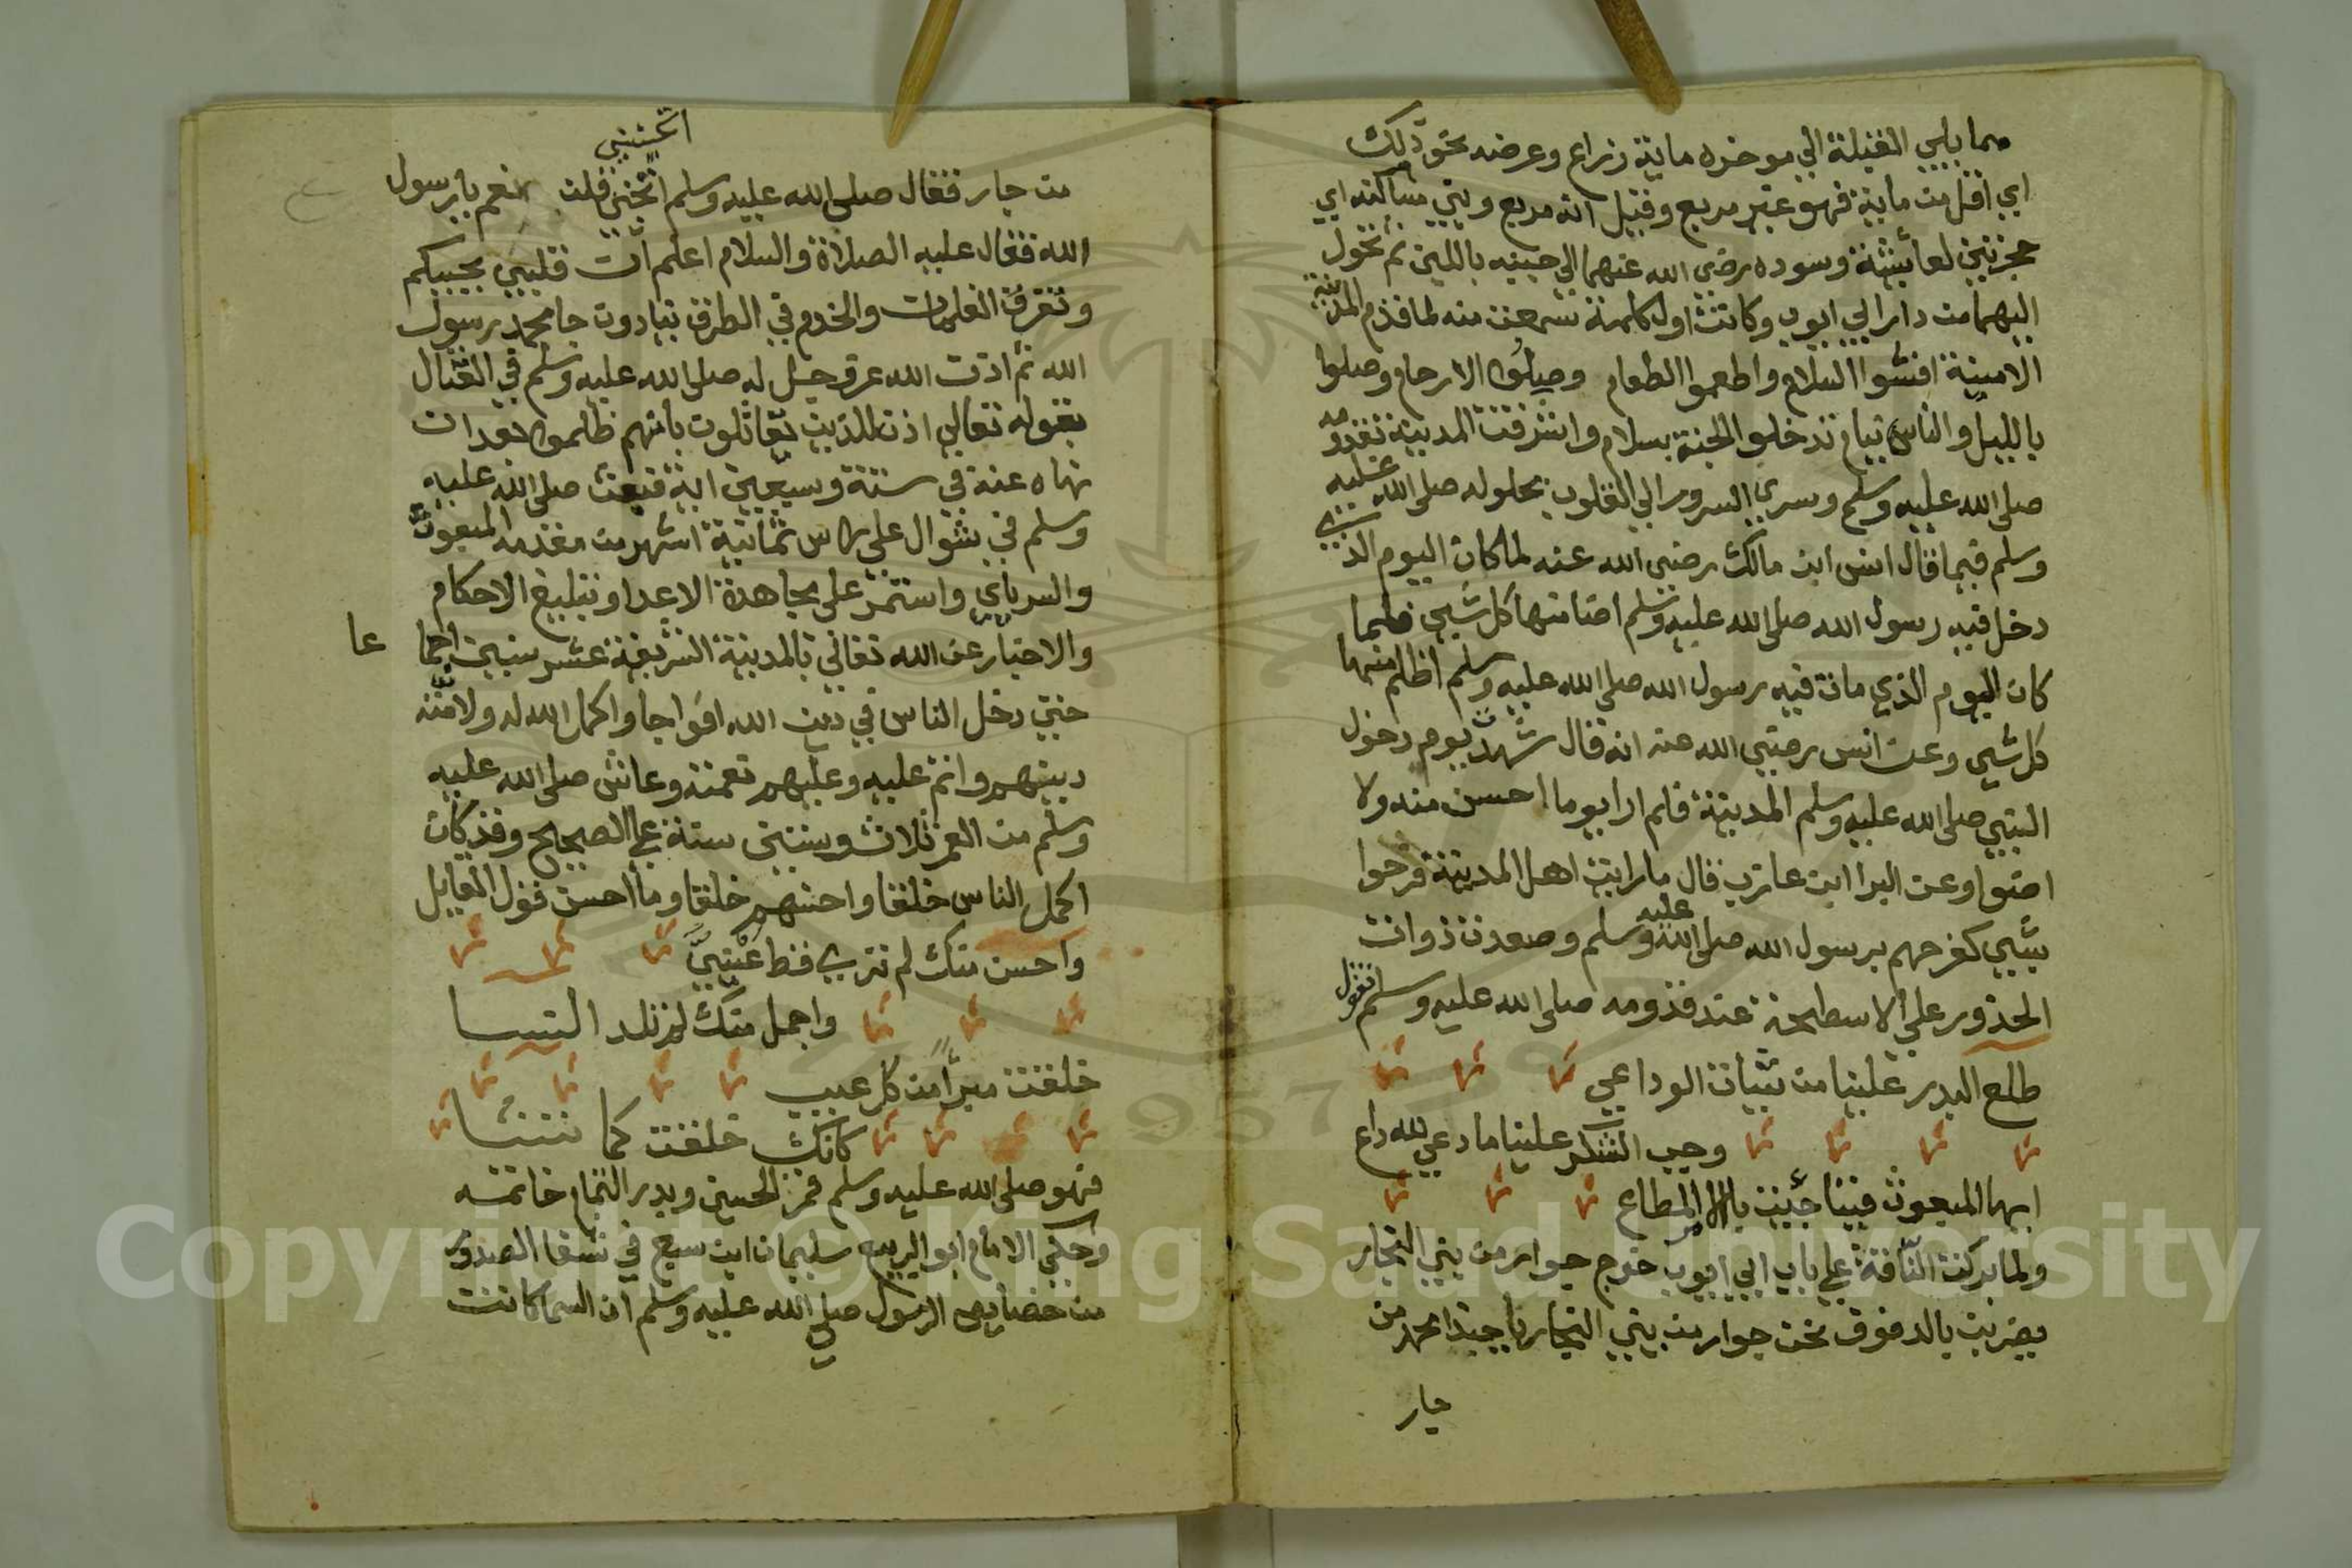 مما يلي القبلة الي موخره ماية ذراع وعرضه نحو ذلك
اي اقل من ماية فهو غير مربع وقيل انه مربع وبني مساكنه اي
حجرتين لعايشة وسوده رضي الله عنهما الي جنبه باللبن ثم تحول
اليهما من دار ابي ايوب وكانت اول كلمة سمعت منه لما قدم المدينة
الامينة افشوا السلام واطعموا الطعام وصلوا الارحام وصلوا
بالليل والناس نيام تدخلوا الجنة بسلام واشرقت المدينة بقدومه
صلي الله عليه وسلم وسري السرور الي القلوب بحلوله صلي الله عليه
وسلم فيما قال انس ابن مالك رضي الله عنه لما كان اليوم الذي
دخل فيه رسول الله صلي الله عليه وسلم اضا منها كل شي فلما
كان اليوم الذي مات فيه رسول الله صلي الله عليه وسلم اظلم منها
كل شي وعن انس رضي الله عنه انه قال شهدت يوم دخول
النبي صلي الله عليه وسلم المدينة فلم ار ايوما احسن منه ولا
اضوا وعن البرا ابن عازب قال ما رايت اهل المدينة فرحوا
بشي كفرحهم برسول الله صلي الله عليه وسلم وصعدن ذوات
الخذور علي الاسطحة عند قدومه صلي الله عليه وسلم تقول
طلع البدر علينا من ثنيات الوداعي
وجب الشكر علينا ما دعي لله داع
ايها المبعوث فينا جيت بالامر المطاع
ولما بركت الناقة علي باب ابي ايوب خرج جوار من بني النجار
يضربن بالدفوف نحن جوار من بني النجار يا حبذا محمد من
جار
اتحببني
من جار فقال صلي الله عليه وسلم اتحبني قلن نعم يا رسول
الله فقال عليه الصلاة والسلام اعلم ان قلبي يحبكم
وتفرق الغلمات والخدم في الطرق ينادون جا محمد رسول
الله ثم اذن الله عز وجل له صلي الله عليه وسلم في القتال
بقوله تعالي اذن للذين يقاتلون بانهم ظلموا بعد ان
نهاه عنه في ستة وسبعين اية فبعث صلي الله عليه
وسلم في شوال علي راس ثمانية اشهر من مقدمه المبعوث
والسرياي واستمر علي مجاهدة الاعدا وتبليغ الاحكام
والاخبار عن الله تعالي بالمدينة الشريفة عشر سنين اجما عا
حتي دخل الناس في دين الله افواجا واكمل الله له ولامته
دينهم واتم عليه وعليهم نعمته وعاش صلي الله عليه
وسلم من العمر ثلاث وستين سنة علي الصحيح وقد كان
اكمل الناس خلقا واحسنهم خلقا وما احسن قول القايل
واحسن منك لم تري قط عيني
واجمل منك لم تلد النسا
خلقت مبرأ من كل عيب
كانك خلقت كما تشا
فهو صلي الله عليه وسلم قمر الحسن وبدر التمام خاتمه
وحكي الامام ابو الربيع سليمان ابن سبع في شفا الصدور
من خصايص الرسول صلي الله عليه وسلم ان السما كانت
Copyright © King Saud University
1957